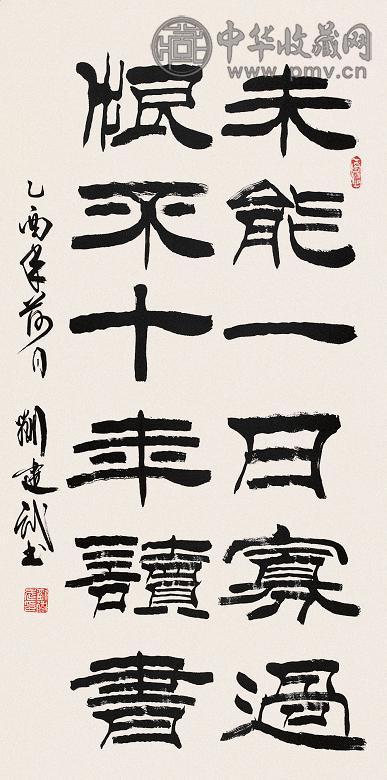 中华收藏网
www.pmv.cn
未能一日寡過
恨不十年讀書
乙酉年荷月